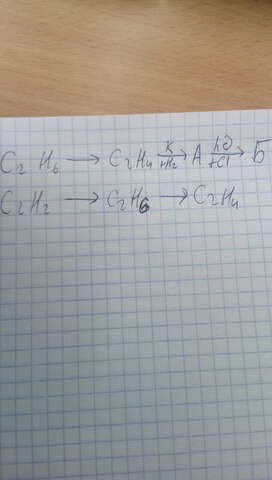 C₂ H₆ → C₂H₄ K +H₂ → А hϑ +Cl → Б
C₂H₂ → C₂H₆ → C₂H₄